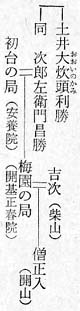 土井大炊頭利勝
おおいのかみ
同 次郎左衛門昌勝
初台の局(安養院)
梅園の局(開基正春院)
吉次(柴山)
僧正入(開山)